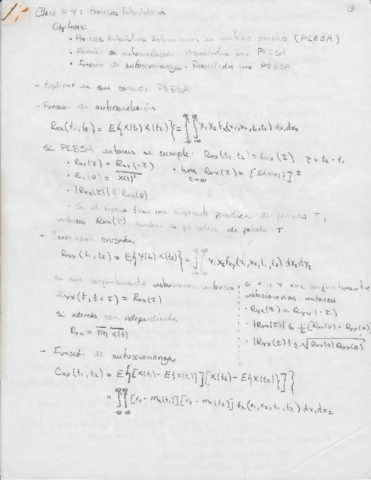 Clase # 4: Procesos Estocásticos
Objetivos:
• Procesos Estocásticos Estacionarios en sentido amplio (PEESA)
• Función de autocorrelación - Propiedades para PEESA
• Función de autocovarianza - Propiedades para PEESA
- Explicar en que consiste PEESA
- Función de autocorrelación
Rxx(t₁,t₂) = E{X(t₁) X(t₂)} = ∫∫ x₁ x₂ fx(x₁,x₂,t₁,t₂) dx₁ dx₂
Si PEESA entonces se cumple: Rxx(t₁,t₂) = Rxx(τ) τ = t₂ - t₁
• Rxx(τ) = Rxx(-τ)
• Rxx(0) =
• |Rxx(τ)| ≤ Rxx(0)
• Si el proceso tiene una componente periódica de período T,
entonces Rxx(τ) también es periódica de período T
- Correlación cruzada
si son conjuntamente estacionarios entonces
Ryx(t₁,t₂) = Ryx(τ)
si además son independientes
si X y Y son conjuntamente
estacionarios entonces
• Ryx(τ) = Rxy(-τ)
• |Rxy(τ)| ≤ ½[Rxx(0) + Ryy(0)]
• |Rxy(τ)| ≤ √Rxx(0) Ryy(0)
- Función de autocovarianza
Cxx(t₁,t₂) = E{[X(t₁) - E{X(t₁)}][X(t₂) - E{X(t₂)}]}
= ∫∫ [x₁ - mx(t₁)][x₂ - mx(t₂)] fx(x₁,x₂,t₁,t₂) dx₁ dx₂